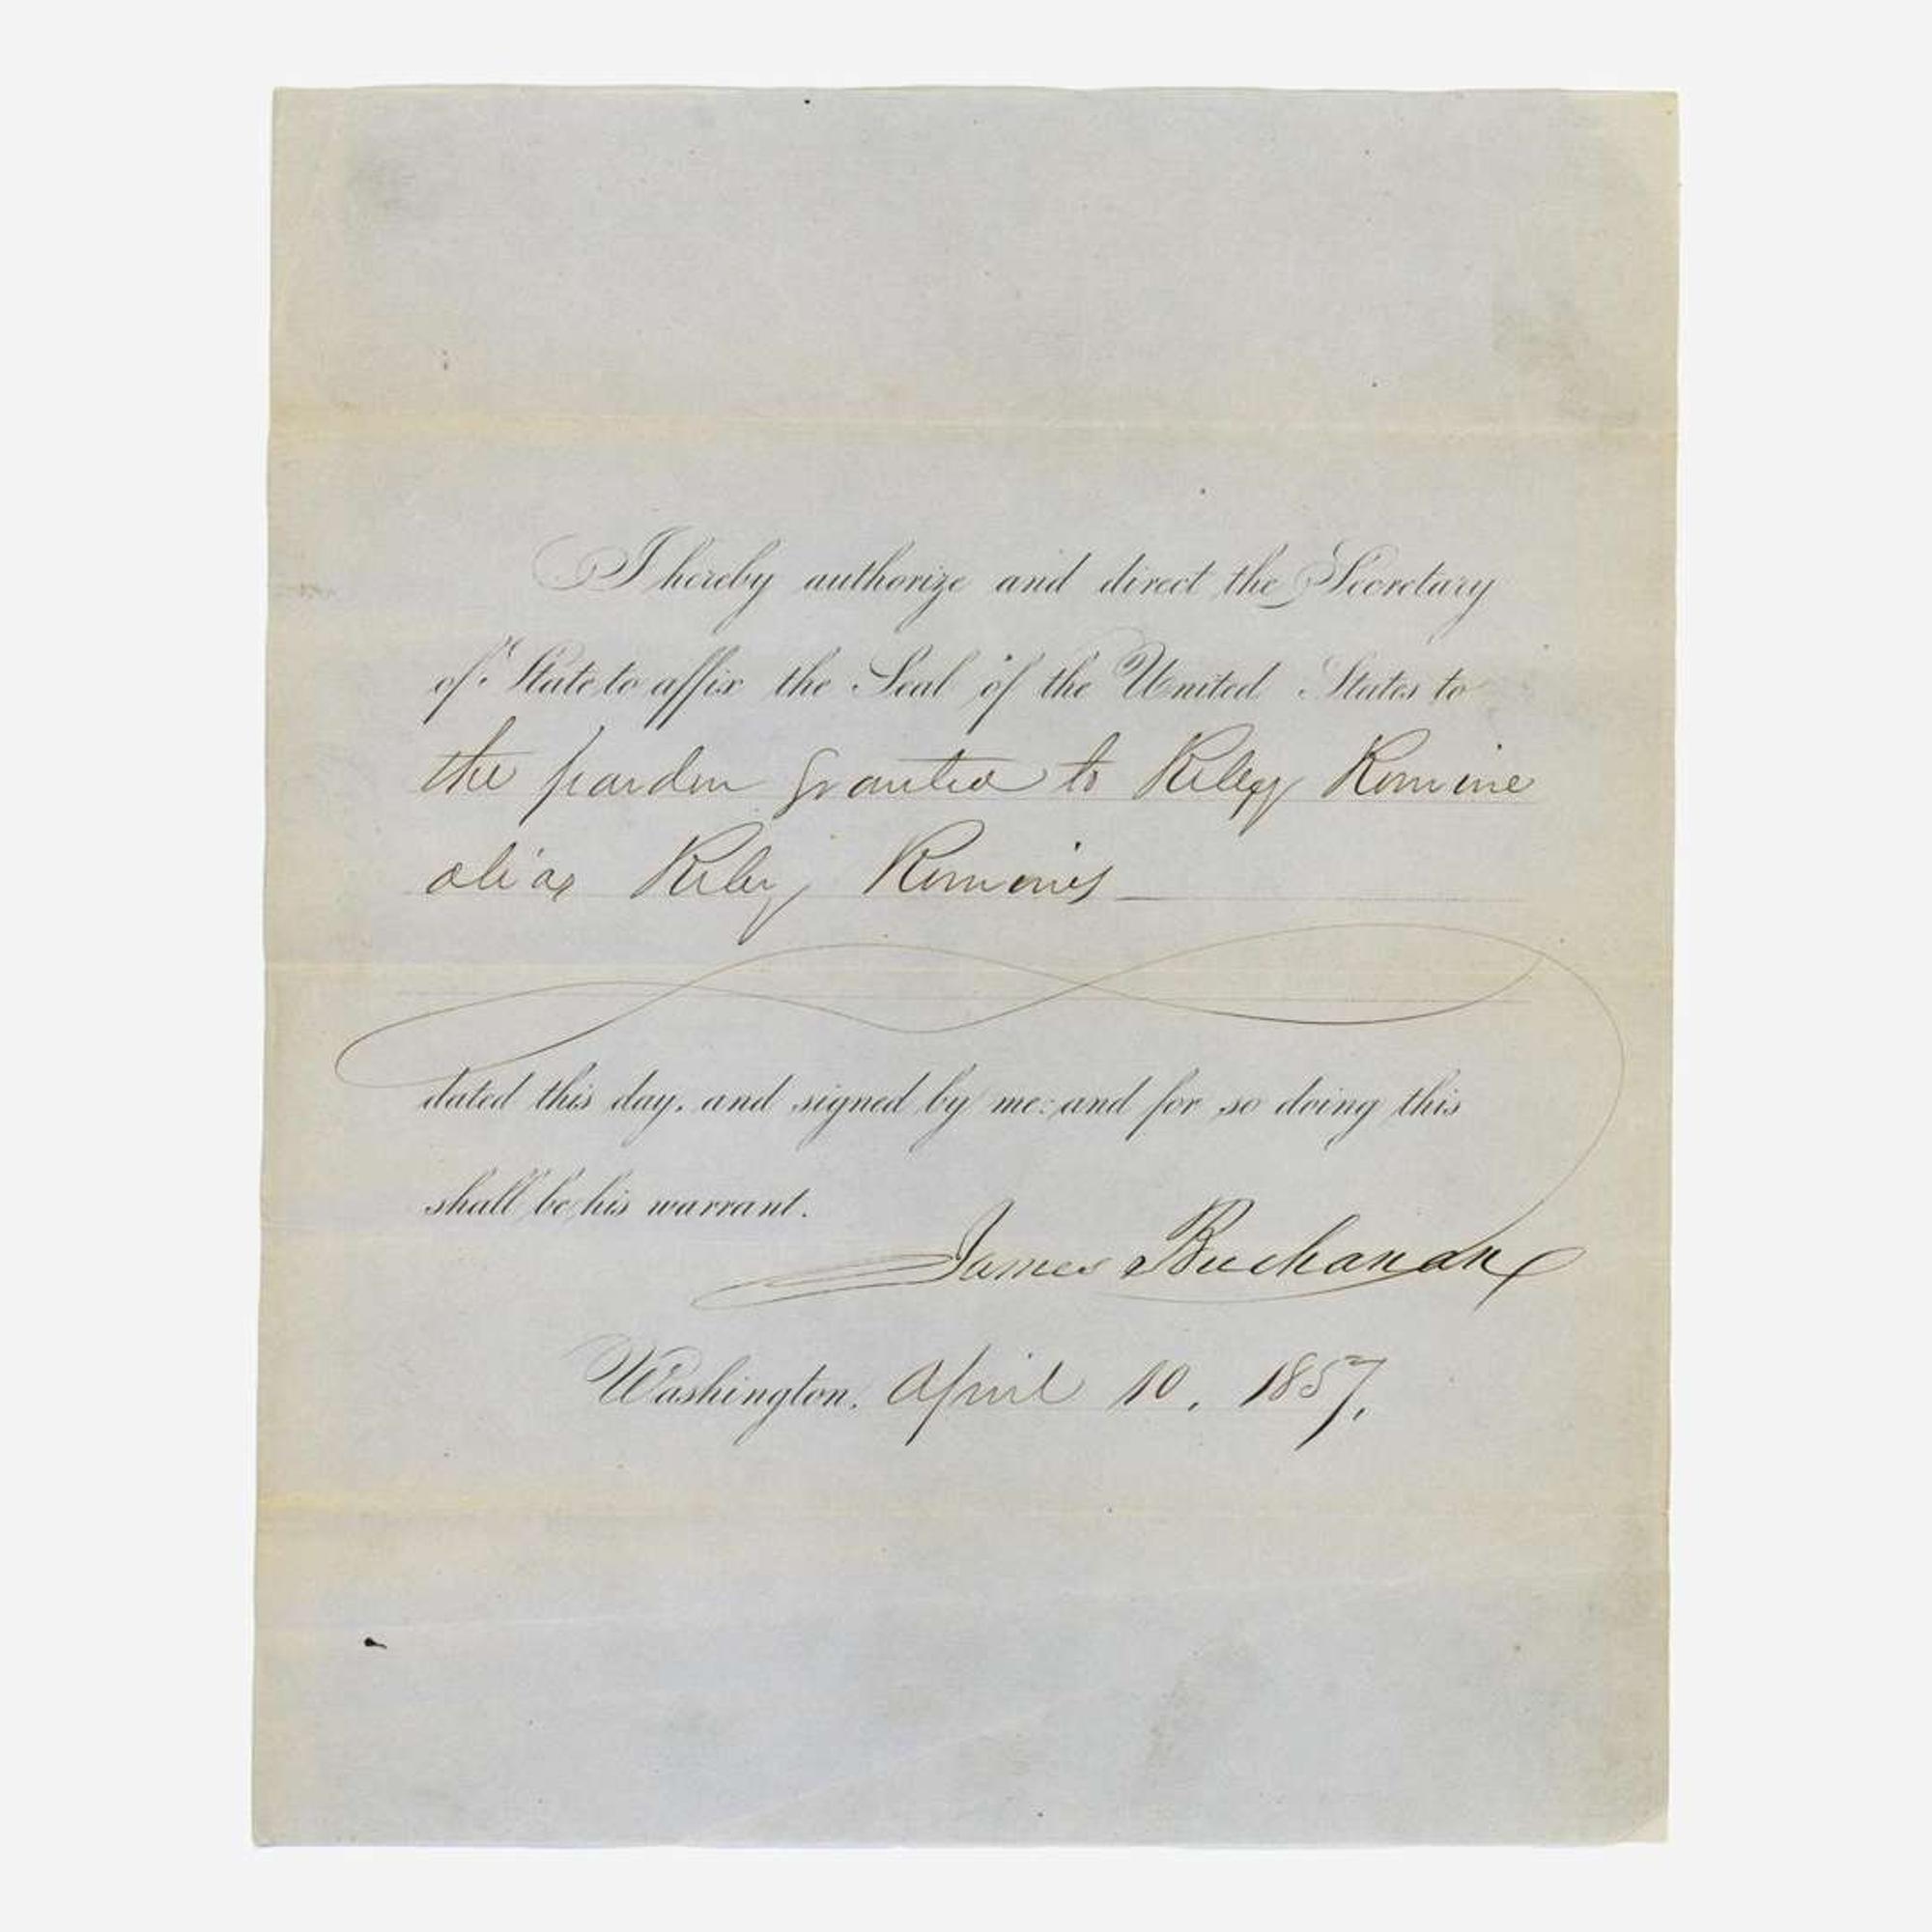 I hereby authorize and direct the Secretary
of State to affix the Seal of the United States to
the pardon granted to Riley Romine
alias Riley Romines
dated this day, and signed by me: and for so doing this
shall be his warrant.
James Buchanan
Washington, April 10, 1857,